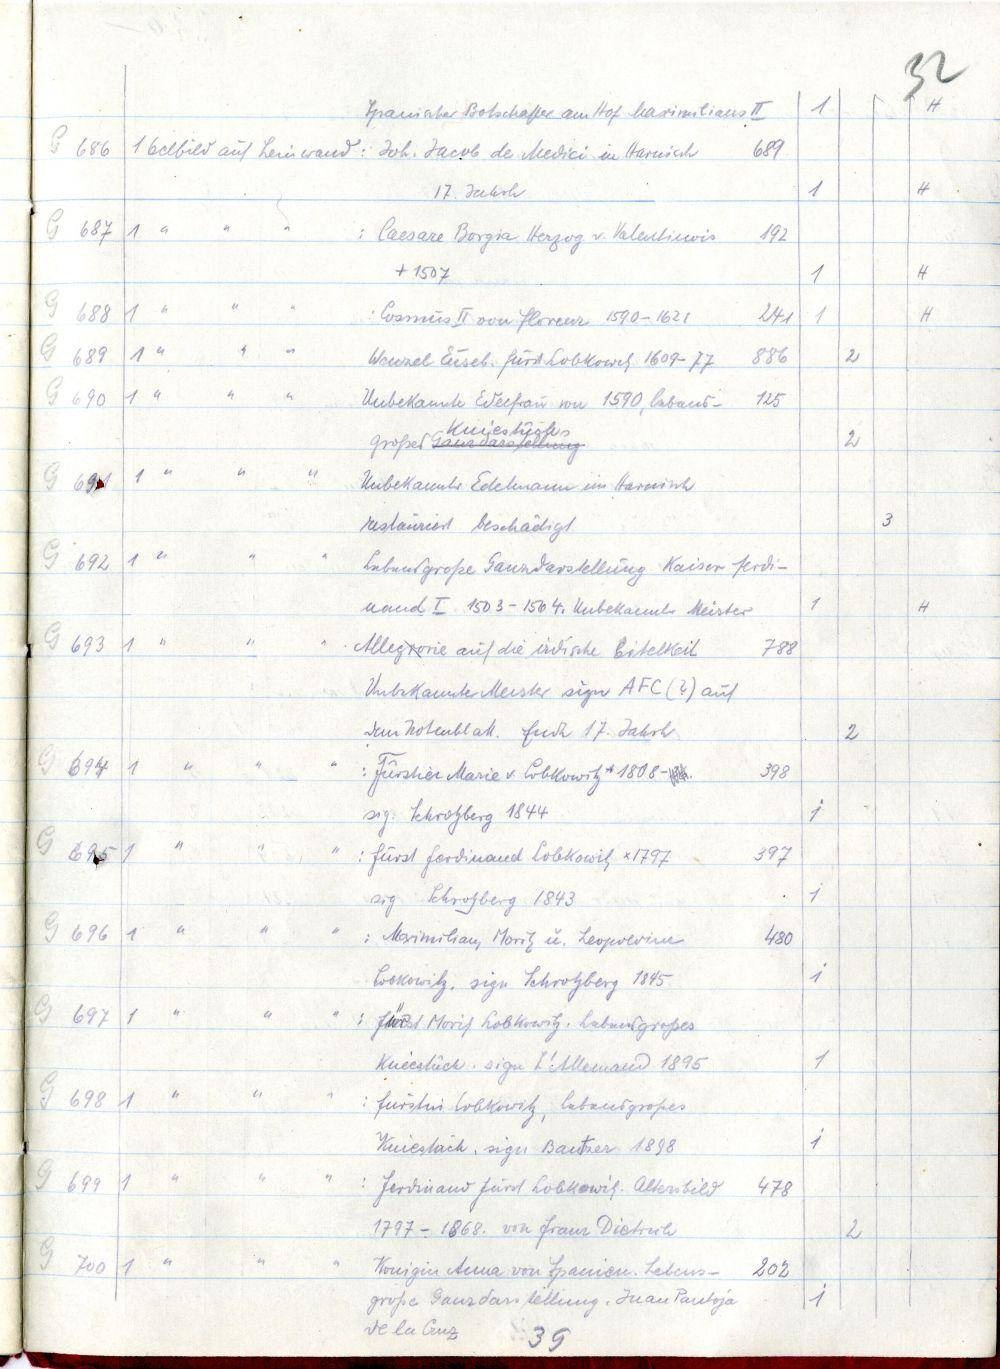 32
Spanischer Botschafter am Hof Maximilians II 1 H
G 686 1 Oelbild auf Leinwand : Joh. Jacob de Medici in Harnisch 689
17. Jahrh 1 H
G 687 1 " " " : Caesare Borgia Herzog v. Valentinois 192
+ 1507 1 H
G 688 1 " " " : Cosmus II von Florenz 1590-1621 241 1 H
G 689 1 " " " Wenzel Euseb. Fürst Lobkowitz 1609-77 886 2
G 690 1 " " " Unbekannte Edelfrau von 1590, lebens- 125
Kniestück
großes Ganzdarstellung 2
G 691 1 " " " Unbekannter Edelmann im Harnisch
restauriert beschädigt 3
G 692 1 " " " Lebensgroße Ganzdarstellung Kaiser Ferdi-
nand I 1503-1564. Unbekannter Meister 1 H
G 693 1 " " " Allegorie auf die irdische Eitelkeit 788
Unbekannter Meister sign AFC (?) auf
dem Notenblatt. Ende 17. Jahrh 2
G 694 1 " " " : Fürstin Marie v. Lobkowitz * 1808- 398
sig. Schrotzberg 1844 1
G 695 1 " " " : Fürst Ferdinand Lobkowitz *1797 397
sig Schrotzberg 1843 1
G 696 1 " " " : Maximilian, Moritz u. Leopoldine 480
Lobkowitz. sign Schrotzberg 1845 1
G 697 1 " " " : Fürst Moritz Lobkowitz. Lebensgroßes
Kniestück. sign L'Allemand 1895 1
G 698 1 " " " : Fürstin Lobkowitz, lebensgroßes
Kniestück. sign 1898 1
G 699 1 " " " : Ferdinand Fürst Lobkowitz. Altersbild 478
1797-1868. von Franz Dietrich 2
G 700 1 " " " Königin Anna von Spanien. Lebens- 202
große Ganzdarstellung. Juan Pantoja 1
de la Cruz
39